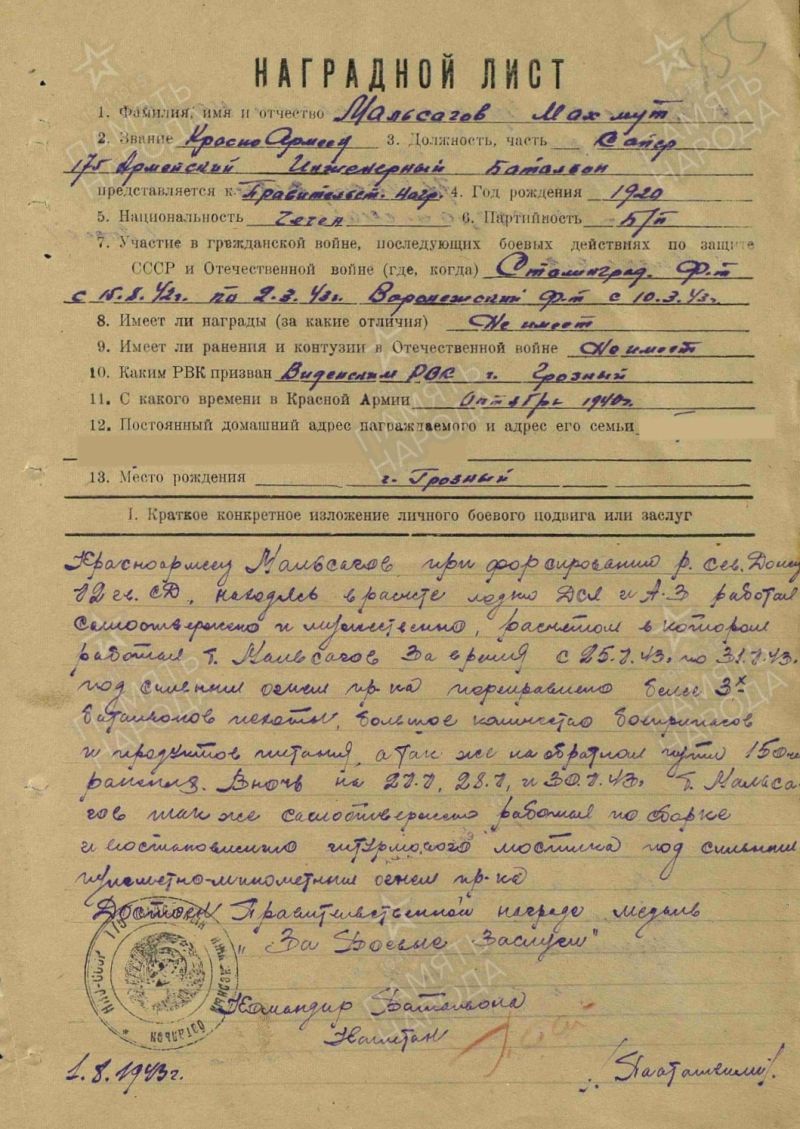 НАГРАДНОЙ ЛИСТ
1. Фамилия, имя и отчество Мальсагов Махмут
2. Звание Красноармеец 3. Должность, часть Сапер
175 Армейский Инженерный Баталион
представляется к Правительст. Нагр. 4. Год рождения 1920
5. Национальность Чечен 6. Партийность б/п
7. Участие в гражданской войне, последующих боевых действиях по защите
СССР и Отечественной войне (где, когда) Сталинград. Ф-т
с 15.8.42г. по 2.3.43г. Воронежский Ф-т с 10.3.43г.
8. Имеет ли награды (за какие отличия) Не имеет
9. Имеет ли ранения и контузии в Отечественной войне Не имеет
10. Каким РВК призван Виденским РВК г. Грозный
11. С какого времени в Красной Армии Октябрь 1940г.
12. Постоянный домашний адрес награждаемого и адрес его семьи
13. Место рождения г. Грозный
I. Краткое конкретное изложение личного боевого подвига или заслуг
Красноармеец Мальсагов при форсировании р. Сев. Донец
гв. СД, находясь в расчете лодки и А-3 работал
самоотвержено и мужественно, расчетом в котором
работал т. Мальсагов за время с 25.7.43. по 31.7.43.
под сильным огнем пр-ка переправлено более 3х
баталионов пехоты, большое количество боеприпасов
и продуктов питания, а так же на обратном пути 150 че.
ранения. В ночь на 27.7, 28.7, и 30.7.43. т. Мальса-
гов так же самоотвержено работал по сборке
и штурмового мостика под сильным
пулеметно-минометным огнем пр-ка
Достоен Правительственной награде медаль
"За Боевые Заслуги"
Командир Батальона
Капитан
1.8.1943г.
ПАМЯТЬ НАРОДА